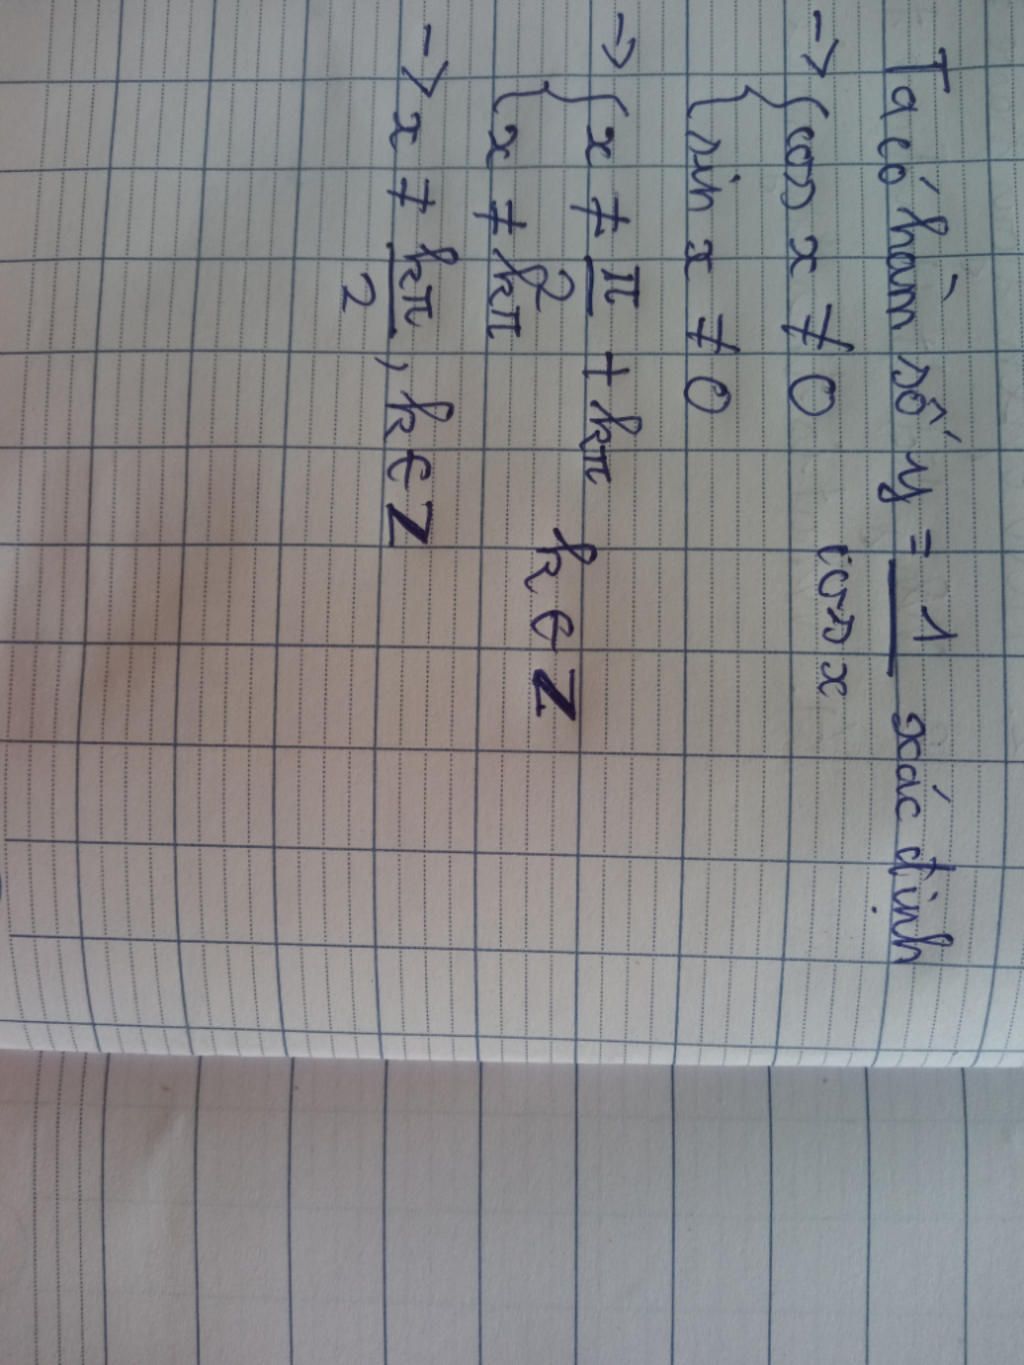 Ta có hàm số y = 1 xác định
cosx
→ { cos x ≠ 0
sin x ≠ 0
→ { x ≠ π/2 + kπ
x ≠ kπ
k ∈ Z
→ x ≠ kπ/2, k ∈ Z